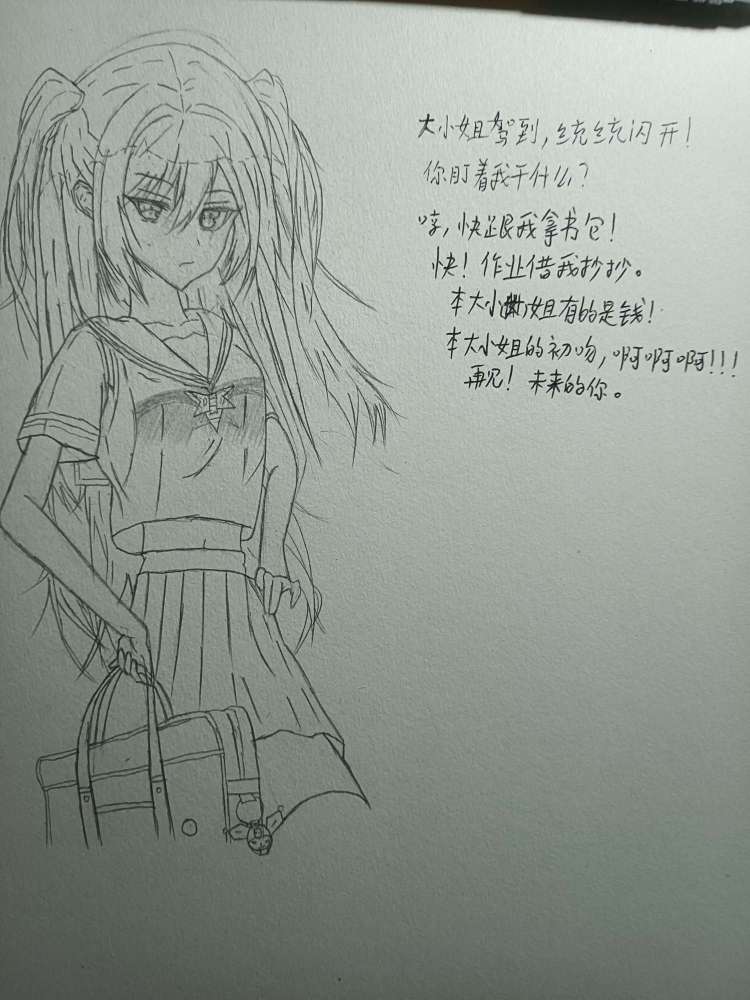 大小姐驾到,统统闪开!
你盯着我干什么?
哼,快跟我拿书包!
快!作业借我抄抄。
本大小姐有的是钱!
本大小姐的初吻,啊啊啊!!!
再见!未来的你。